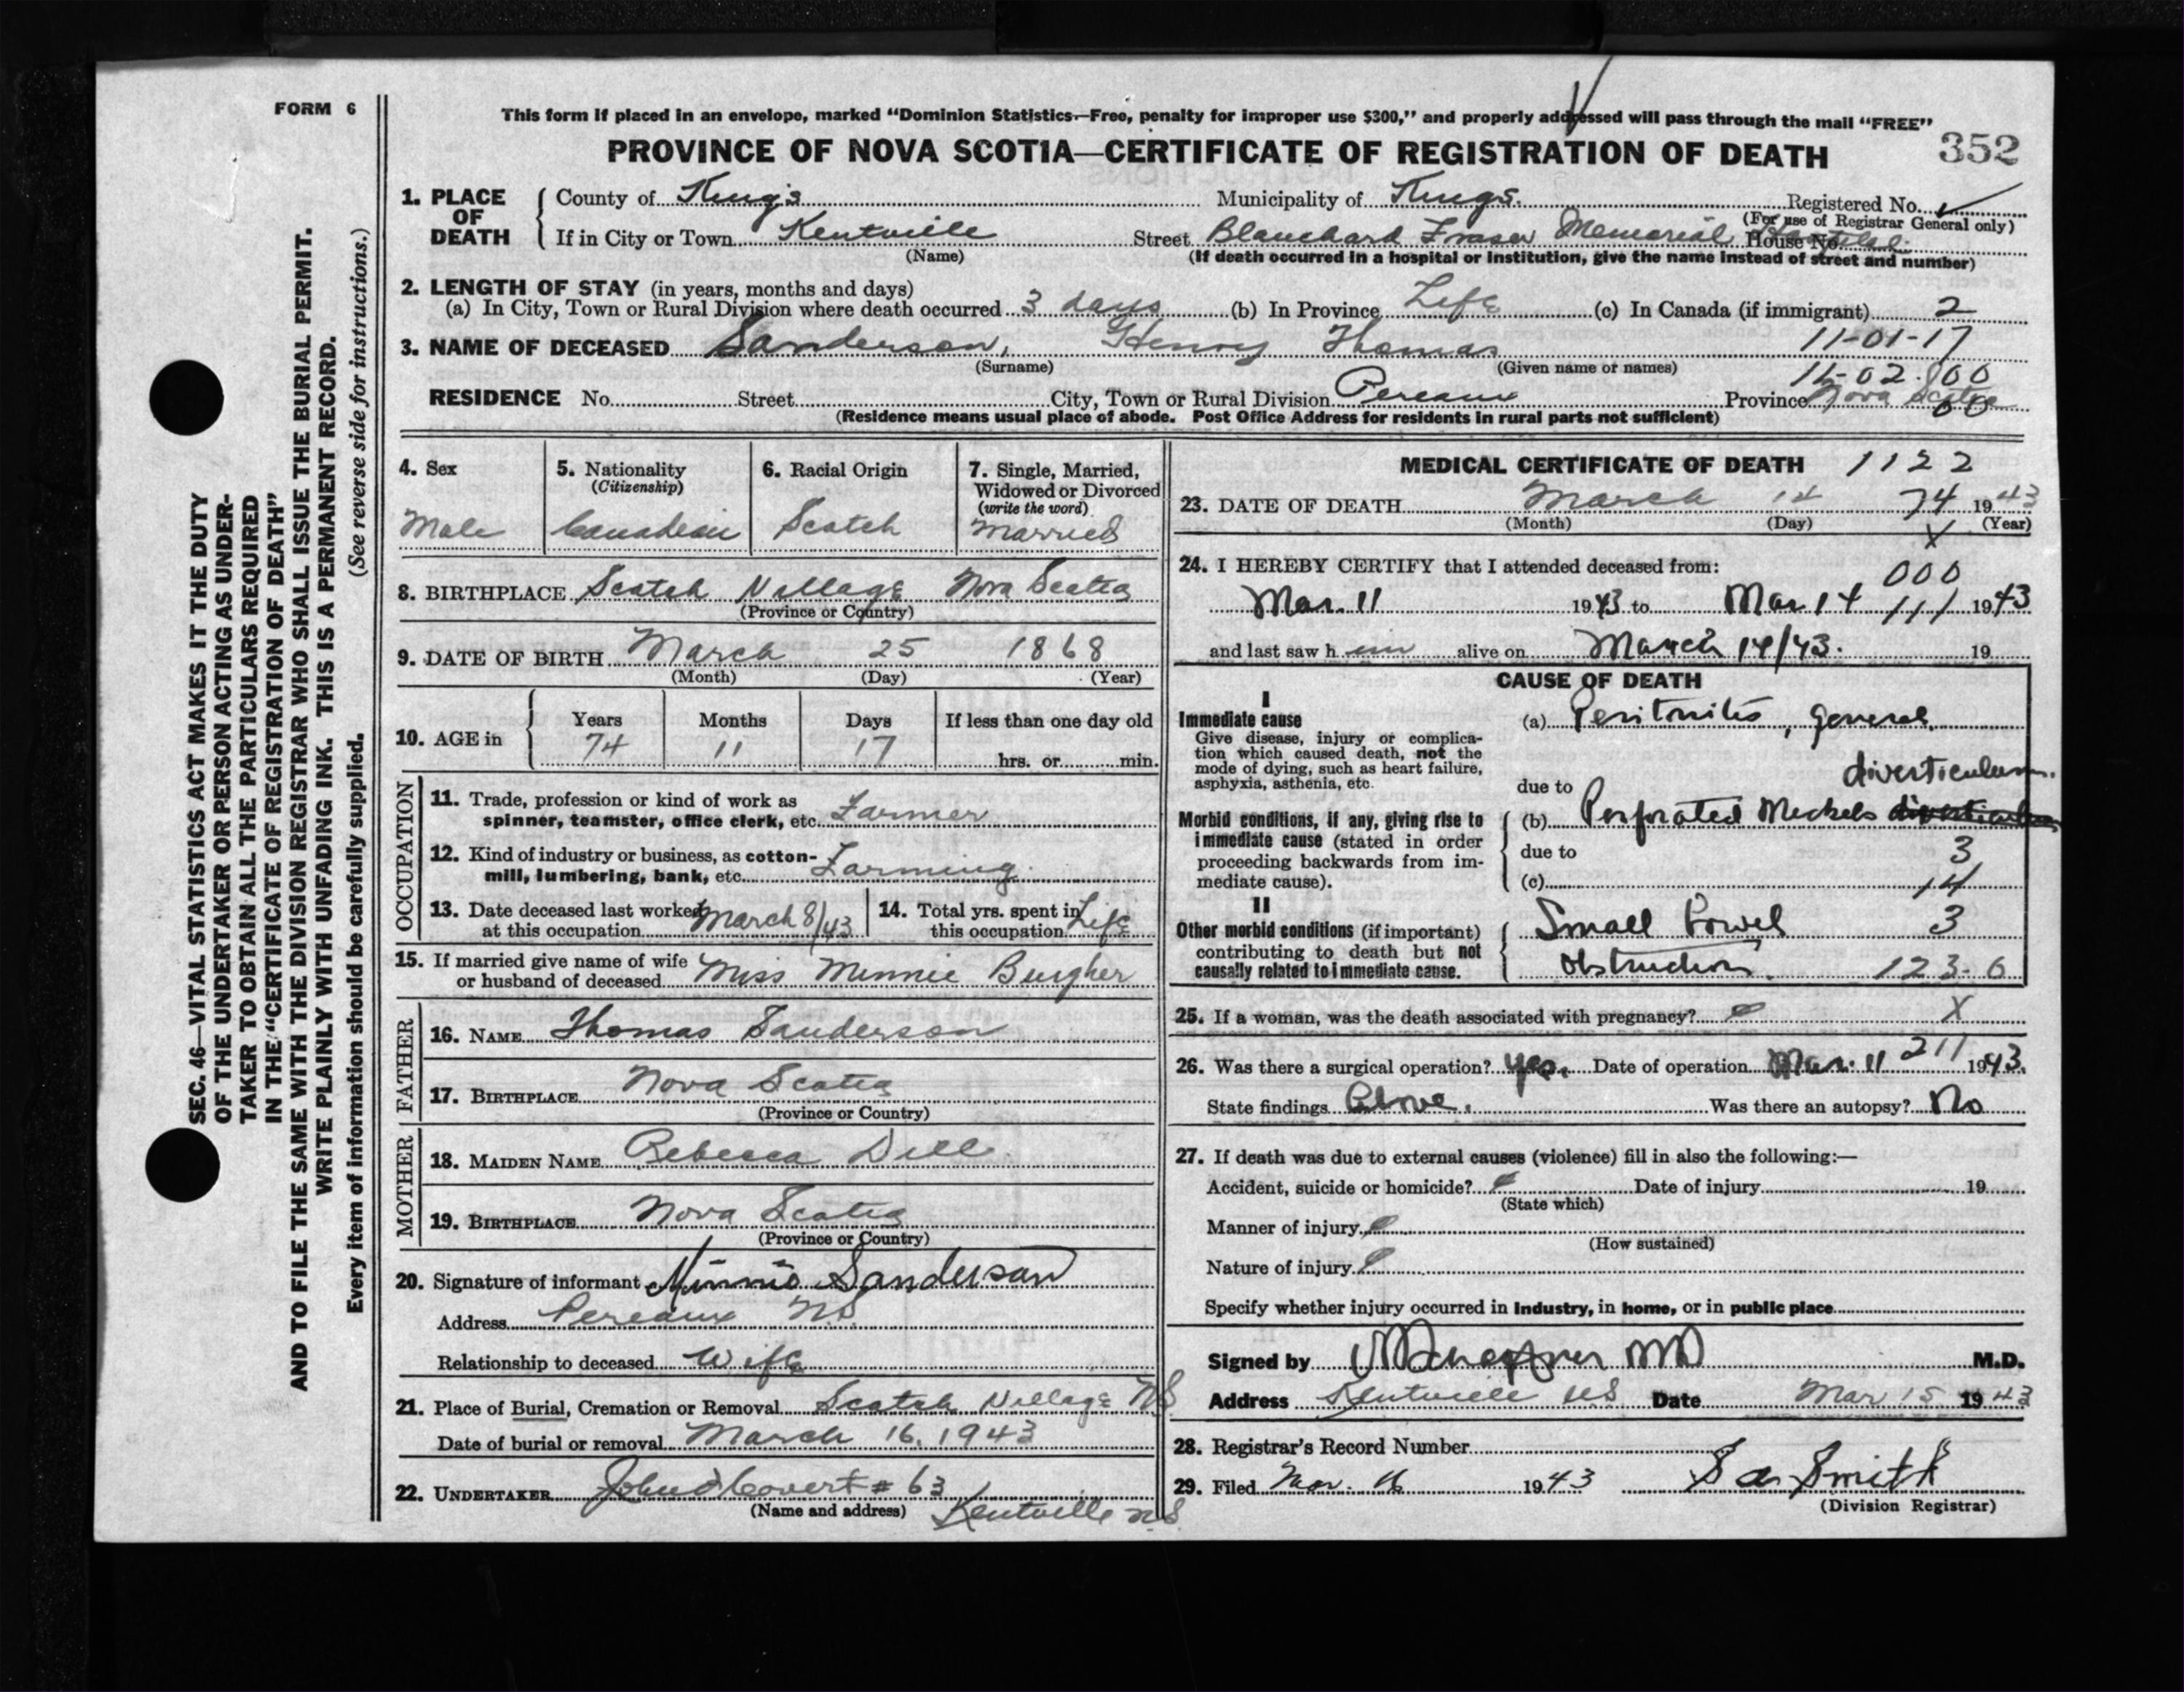 FORM 6
This form if placed in an envelope, marked “Dominion Statistics—Free, penalty for improper use $300,” and properly addressed will pass through the mail “FREE”
PROVINCE OF NOVA SCOTIA—CERTIFICATE OF REGISTRATION OF DEATH 352
SEC. 46—VITAL STATISTICS ACT MAKES IT THE DUTY
OF THE UNDERTAKER OR PERSON ACTING AS UNDER-
TAKER TO OBTAIN ALL THE PARTICULARS REQUIRED
IN THE “CERTIFICATE OF REGISTRATION OF DEATH”
AND TO FILE THE SAME WITH THE DIVISION REGISTRAR WHO SHALL ISSUE THE BURIAL PERMIT.
WRITE PLAINLY WITH UNFADING INK. THIS IS A PERMANENT RECORD.
Every item of information should be carefully supplied. (See reverse side for instructions.)
1. PLACE OF DEATH County of King's Municipality of Kings. Registered No.
(For use of Registrar General only)
If in City or Town Kentville Street Blanchard Fraser Memorial Hospital House No.
(Name) (If death occurred in a hospital or institution, give the name instead of street and number)
2. LENGTH OF STAY (in years, months and days)
(a) In City, Town or Rural Division where death occurred 3 days (b) In Province Life (c) In Canada (if immigrant) 2
3. NAME OF DECEASED Sanderson, Henry Thomas 11-01-17
(Surname) (Given name or names) 11-02-00
RESIDENCE No. Street City, Town or Rural Division Pereaux Province Nova Scotia 00
(Residence means usual place of abode. Post Office Address for residents in rural parts not sufficient)
4. Sex Male
5. Nationality (Citizenship) Canadian
6. Racial Origin Scotch
7. Single, Married, Widowed or Divorced (write the word) Married
8. BIRTHPLACE Scotch Village Nova Scotia
(Province or Country)
9. DATE OF BIRTH March 25 1868
(Month) (Day) (Year)
10. AGE in Years 74 Months 11 Days 17 If less than one day old hrs. or min.
OCCUPATION
11. Trade, profession or kind of work as
spinner, teamster, office clerk, etc. Farmer
12. Kind of industry or business, as cotton-
mill, lumbering, bank, etc. Farming
13. Date deceased last worked at this occupation March 8/43
14. Total yrs. spent in this occupation Life
15. If married give name of wife
or husband of deceased Miss Minnie Burgher
FATHER
16. NAME Thomas Sanderson
17. BIRTHPLACE Nova Scotia
(Province or Country)
MOTHER
18. MAIDEN NAME Rebecca Dill
19. BIRTHPLACE Nova Scotia
(Province or Country)
20. Signature of informant Minnie Sanderson
Address Pereaux N.S.
Relationship to deceased Wife
21. Place of Burial, Cremation or Removal Scotch Village NS
Date of burial or removal March 16, 1943
22. UNDERTAKER Covert # 63
(Name and address) Kentville NS
MEDICAL CERTIFICATE OF DEATH 1122
23. DATE OF DEATH March 14 74 1943
(Month) (Day) X (Year)
24. I HEREBY CERTIFY that I attended deceased from: 000
Mar. 11 1943 to Mar 14 111 1943
and last saw h im alive on March 14/43. 19
CAUSE OF DEATH
I
Immediate cause
Give disease, injury or complica-
tion which caused death, not the
mode of dying, such as heart failure,
asphyxia, asthenia, etc.
(a) Peritonitis, general.
due to diverticulum.
Morbid conditions, if any, giving rise to
immediate cause (stated in order
proceeding backwards from im-
mediate cause).
(b) Perforated Meckels
due to 3
(c) 14
II
Other morbid conditions (if important)
contributing to death but not
causally related to immediate cause.
Small bowel 3
obstruction. 123-6
25. If a woman, was the death associated with pregnancy? X
26. Was there a surgical operation? yes. Date of operation Mar. 11 211 1943.
State findings Above. Was there an autopsy? No
27. If death was due to external causes (violence) fill in also the following:—
Accident, suicide or homicide? Date of injury 19
(State which)
Manner of injury
(How sustained)
Nature of injury
Specify whether injury occurred in industry, in home, or in public place
Signed by MD M.D.
Address Kentville NS Date Mar 15 1943
28. Registrar's Record Number
29. Filed Mar. 16 1943 Smith
(Division Registrar)